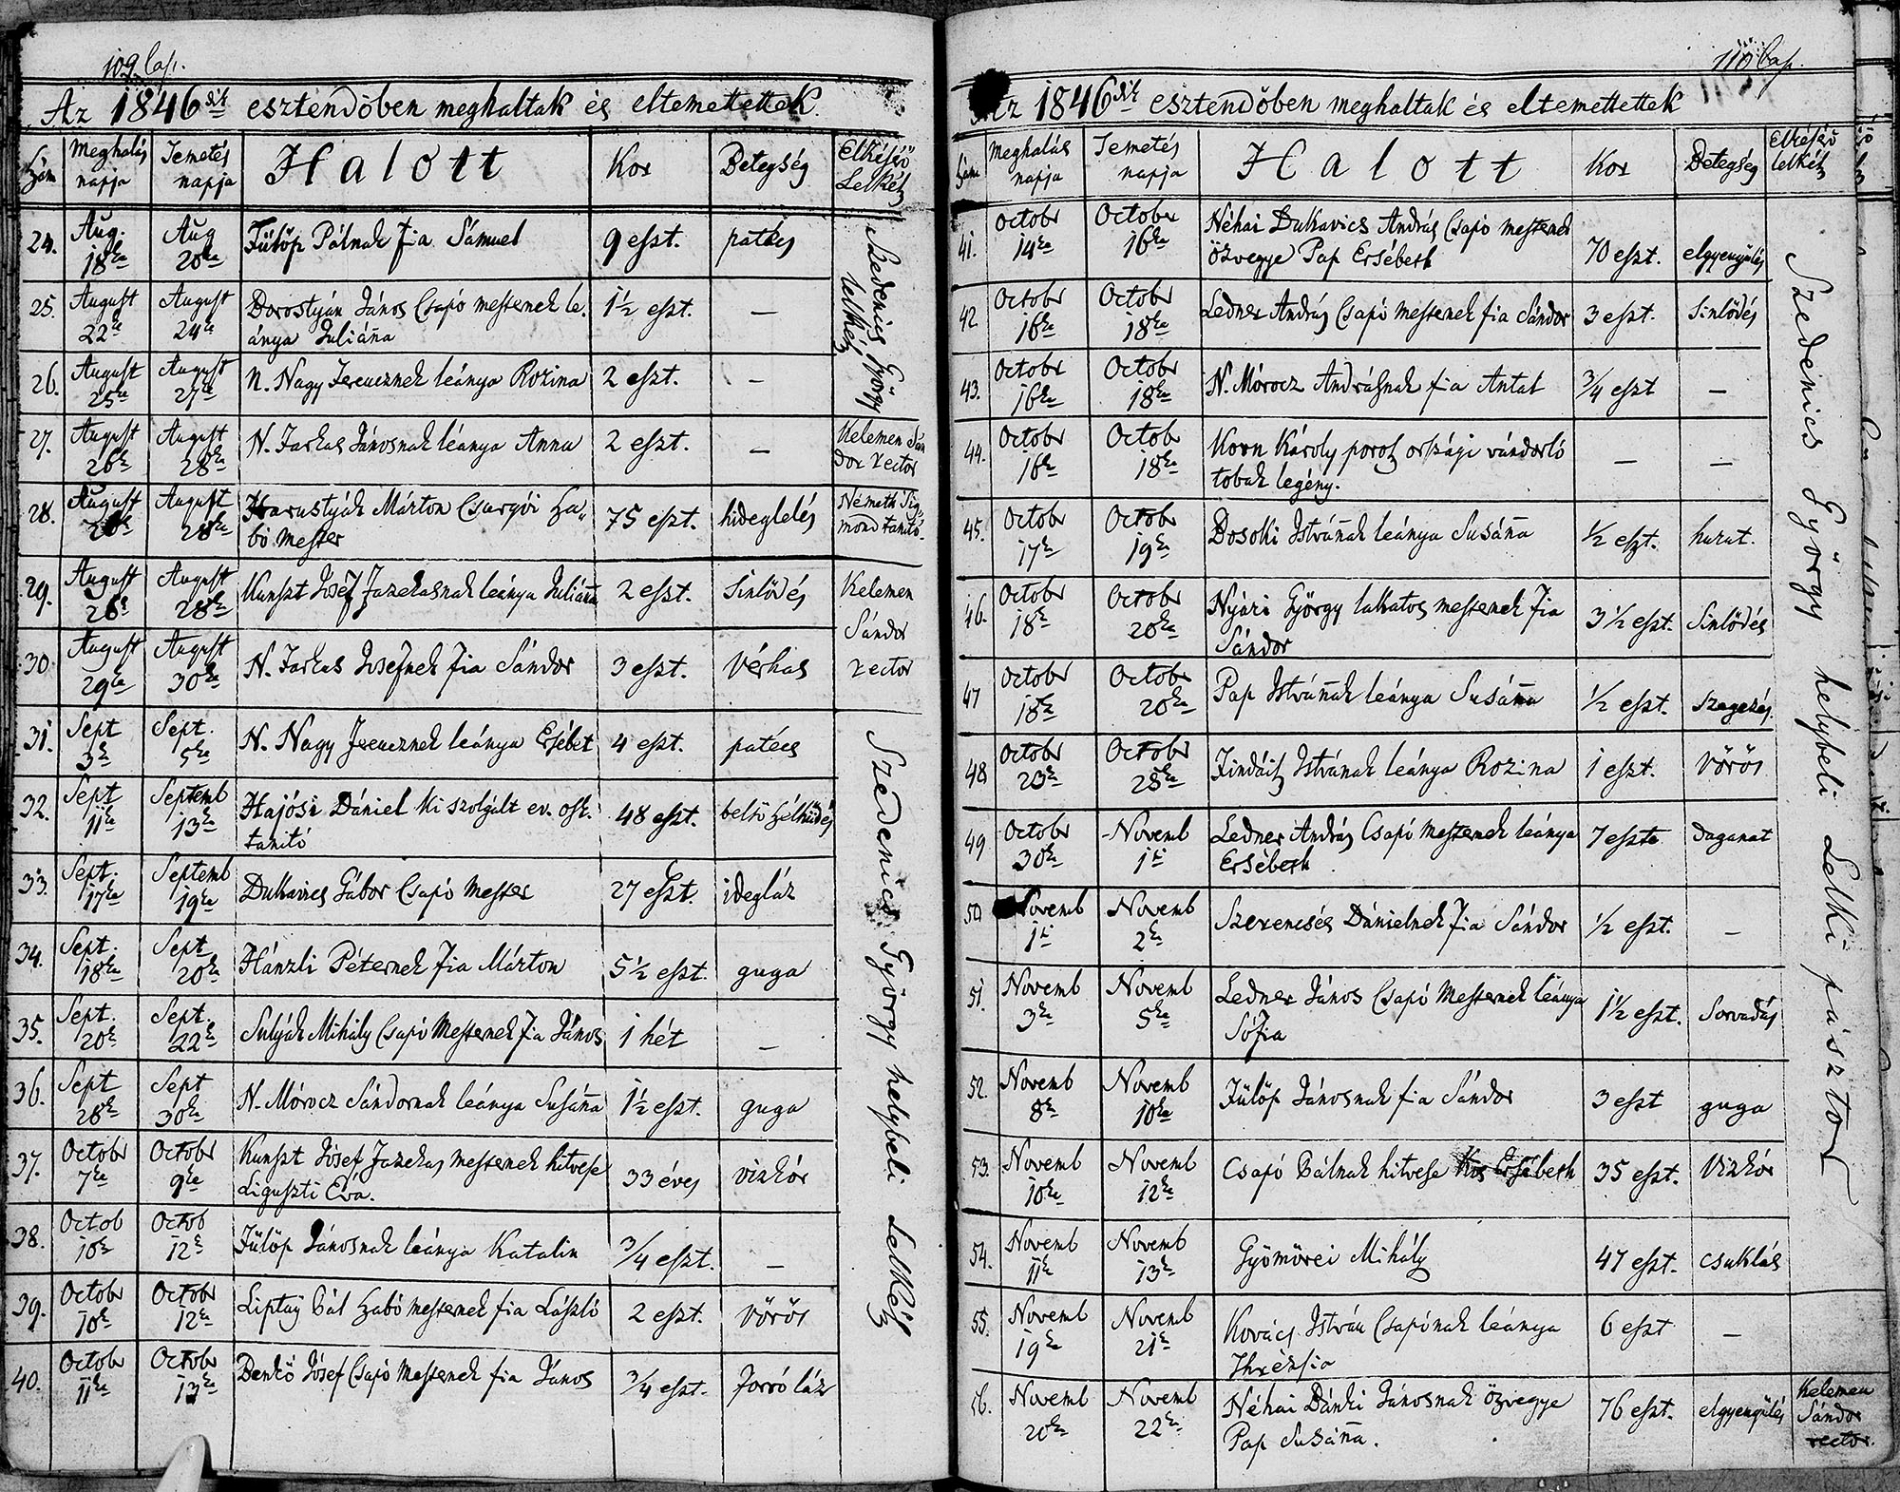 109 lap.
Az 1846dik esztendőben meghaltak és eltemettettek.
Szám Meghalás napja Temetés napja Halott Kor Betegség Elkésérő Lelkész
24. Aug. 18ka Aug 20ka Fülöp Pálnak fia Sámuel 9 eszt. patécs
Szedenics György lelkész
25. August 22ka August 24ka Dorostyán János Csapó mesternek le-
ánya Juliána 1½ eszt. —
26. August 25ka August 27ka N. Nagy Ferencznek leánya Rozina 2 eszt. —
27. August 26ka August 28ka N. Farkas Jánosnak leánya Anna 2 eszt. — Kelemen Sán
dor rector
28. August 26ka August 28ka Harustyák Márton Csurgói Sza„
bó mester 75 eszt. hideglelés Németh Sig„
mond tanító.
29. August 26ka August 28ka Kunszt Jósef Fazekasnak leánya Juliána 2 eszt. Sinlődés Kelemen
Sándor
rector
30. August 29ka August 30ka N. Farkas Josefnek fia Sándor 3 eszt. vérhas
31. Sept 3ka Sept. 5ka N. Nagy Ferencznek leánya Ersébet 4 eszt. patécs
Szedenics György helybeli Lelkész
32. Sept 11ka Septemb 13ka Hajósi Dániel ki szolgált ev. osk.
tanító 48 eszt. belső hélhüdés
33. Sept. 17ka Septemb 19ka Dukavics Gábor Csapó Mester 27 eszt. idegláz
34. Sept. 18ka Sept 20ka Hánzli Péternek fia Márton 5½ eszt. guga
35. Sept. 20ka Sept. 22ka Sulyák Mihály Csapó Mesternek fia János 1 hét —
36. Sept 28ka Sept 30ka N. Mórocz Sándornak leánya Susána 1½ eszt. guga
37. Octobr 7ka Octobr 9ka Kunszt Jósef Fazekas mesternek hitvese
Liguszti Éva. 33 éves vizkór
38. Octob 10ka Octob 12ka Fülöp Jánosnak leánya Katalin ¾ eszt. —
39. Octobr 10ka Octobr 12ka Liptay Pál Szabó mesternek fia László 2 eszt. vörös
40. Octobr 11ka Octobr 13ka Benkő Jósef Csapó Mesternek fia János ¾ eszt. forró láz
110 lap.
Az 1846dik esztendőben meghaltak és eltemettettek
Szám Meghalás napja Temetés napja Halott Kor Betegség Elkésérő lelkész
41. Octobr 14ka Octobr 16ka Néhai Dukavics András Csapó mesternek
özvegye Pap Ersébeth 70 eszt. elgyengülés
Szedenics György helybeli Lelki pásztor
42 Octobr 16ka Octobr 18ka Ledner András Csapó Mesternek fia Sándor 3 eszt. Sinlődés
43. Octobr 16ka Octobr 18ka N. Mórocz Andrásnak fia Antal ¾ eszt —
44. Octobr 16ka Octob 18ka Korn Károly porosz országi vándorló
tobak legény. — —
45. Octobr 17ka Octobr 19ka Dosoki Istvánnak leánya Susána ½ eszt. hurut.
46. Octobr 18ka Octobr 20ka Nyári György lakatos mesternek fia
Sándor 3½ eszt. Sinlődés
47 Octobr 18ka Octobr 20ka Pap Istvánnak leánya Susána ½ eszt. Szagezás
48 Octobr 23ka Octobr 25ka Findáisz Istvának leánya Rozina 1 eszt. vörös
49 Octobr 30ka Novemb 1ső Ledner András Csapó Mesternek leánya
Ersébeth 7 eszt. daganat
50 Novemb 1ső Novemb 2ka Szerencsés Dánielnek fia Sándor ½ eszt. —
51. Novemb 3ka Novemb 5ka Ledner János Csapó Mesternek leánya
Sófia 1½ eszt. Sorvadás
52. Novemb 8ka Novemb 10ka Fülöp Jánosnak fia Sándor 3 eszt guga
53. Novemb 10ka Novemb 12ka Csapó Pálnak hitvese Kis Ersébeth 35 eszt. Vizkór
54. Novemb 11ka Novemb 13ka Gyömörei Mihály 47 eszt. csuklás
55. Novemb 19ka Novemb 21ka Kovács István Csapónak leánya
Thrézsia 6 eszt —
56. Novemb 20ka Novemb 22ka Néhai Dánki Jánosnak özvegye
Pap Susána. 76 eszt. elgyengülés Kelemen
Sándor
rector.